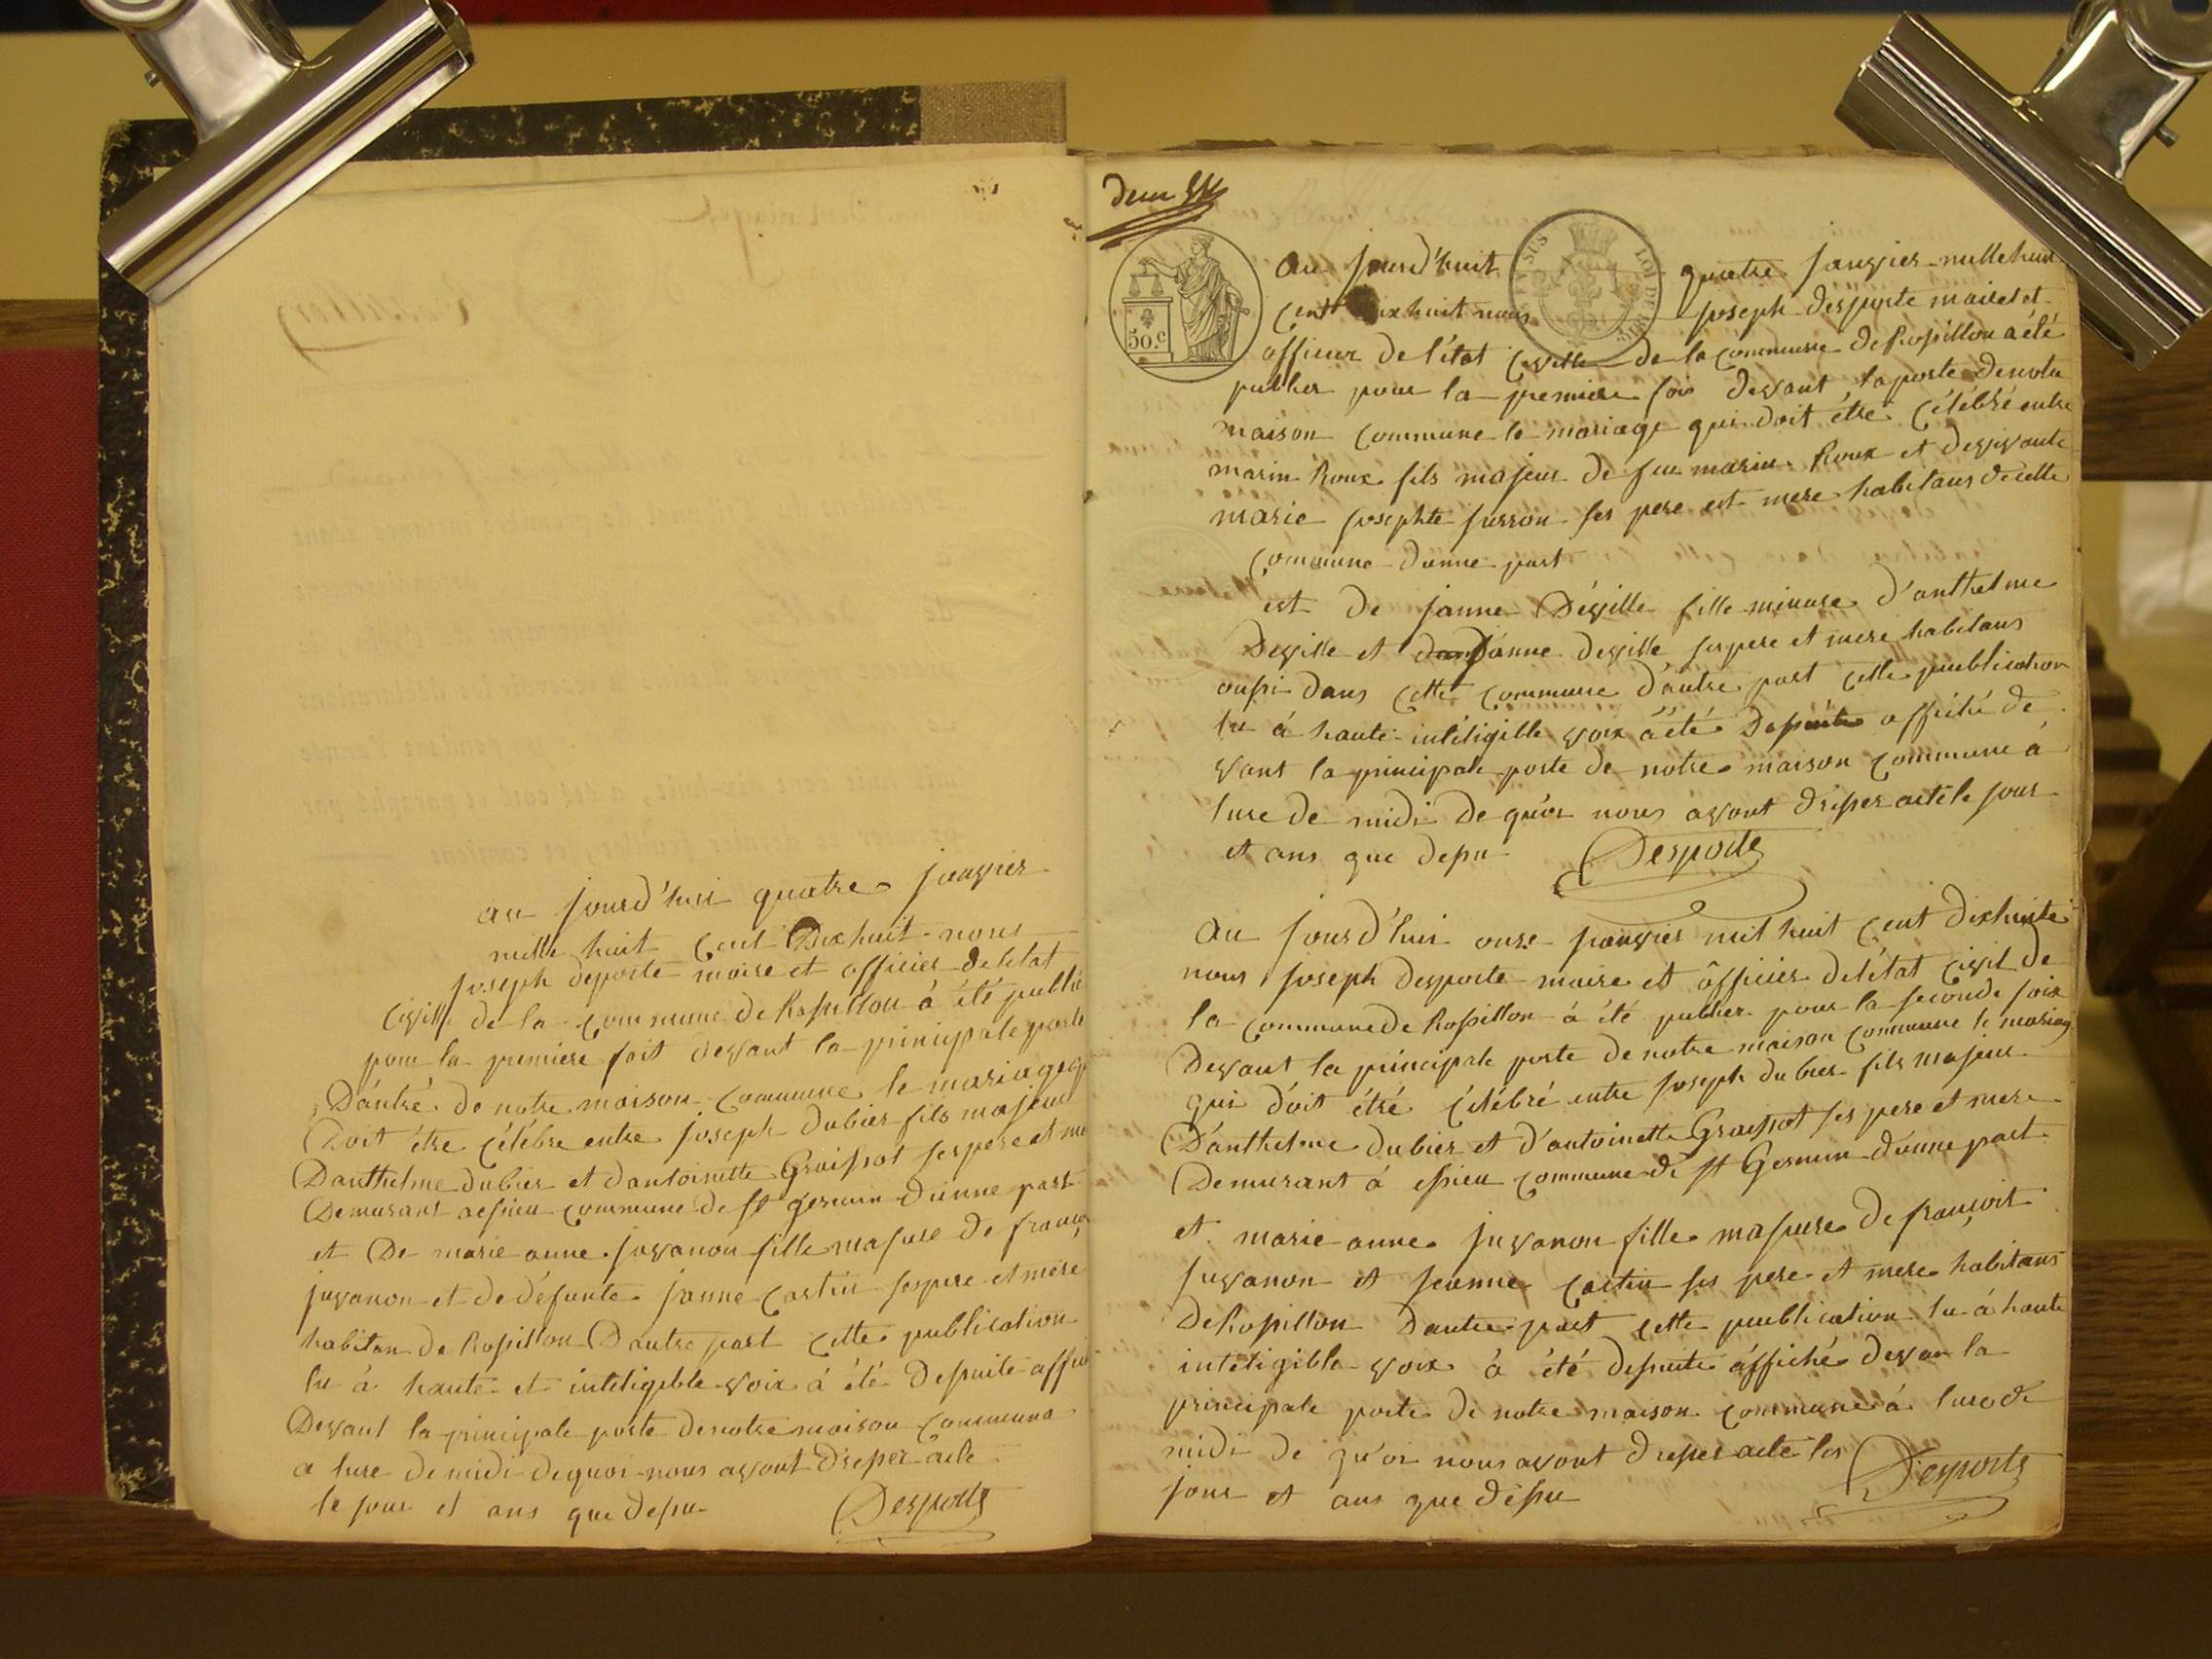 au jourd'hui quatre janvier
mille huit cent Dix huit nous
joseph deporte maire et officier de letat
Civille de la commune de Rossillon à été publié
pour la premiere foit devant la principale porte
Dántré de notre maison commune le mariage q
Doit être célébre entre joseph dubier fils majeur
Danthelme dubier et dantoinette Graissot ses pere et me
Demurant aessieu commune de st germain d'unne part
et De marie anne juvanon fille majure de franço
juvanon et de défunte janne Castin ses pere et mere
habitan de Rossillon D'autre part cette publication
lu à haute et inteligible voix à été Dessuite affi
Devant la principale porte de notre maison commune
a lure de midi de quoi nous avont dresser acte
le jour et ans que dessu
Desporte
deux
50.c
LOI DE 1816
au jourd'huit quatre janvier mille huit
cent dix huit nous joseph desporte maire et
officier de l'état Civille de la commune de Rossillon a été
publier pour la premiere foi devant la porte de notre
maison commune le mariage qui doit être célébré entre
marin Roux fils majeur de feu marin Roux et de vivante
marie josephte jurron ses pere est mere habitans de cette
commune dunne part
est de janne Déville fille minure d'anthelme
Deville et danne deville ses pere et mere habitans
oussi dans cette commune d'autre part cette publication
lu à haute inteligible voix à été Dessuite affiché de
vant la principale porte de notre maison commune à
lure de midi de quoi nous avont dresser acte le jour
et ans que dessu
Desporte
au jourd'hui onze janvier mil huit cent dixhuite
nous joseph desporte maire et officier de létat Civil de
la commune de Rossillon à été publier pour la seconde foix
Devant la principale porte de notre maison commune le mariag
qui doit étré célébré entre joseph dubier fils majeur
D'anthelme dubier et d'antoinette Graissot ses pere et mere
Demurant à essieu commune de st Germin dunne part
et marie anne juvanon fille majure de françoit
juvanon et jeanne Castin ses pere et mere habitans
de Rossillon D'autre part cette publication lu à haute
inteligible voix à été dessuite affiché devan la
principale porte de notre maison commune à lure de
midi de qu'oi nous avont dresser acte les
jour et ans que dessu
Desporte